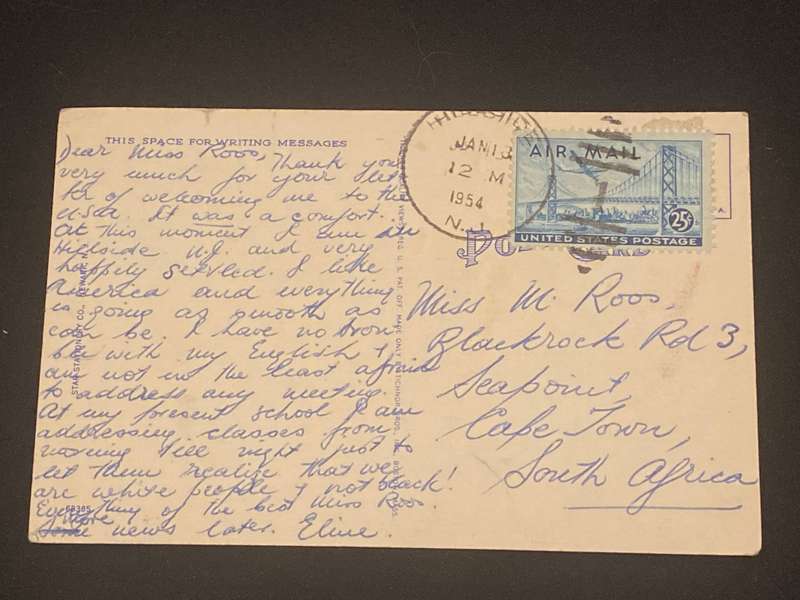 THIS SPACE FOR WRITING MESSAGES
Dear Miss Roos, Thank you
very much for your let
ter of welcoming me to the
U.S.A. It was a comfort.
At this moment I am in
Hillside N.J. and very
happily settled. I like
America and everything
is going as smooth as
can be. I have no trou
ble with my English &
am not in the least afraid
to address any meeting.
At my present school I am
addressing classes from
morning till night just to
let them realise that we
are white people & not black!
Everything of the best Miss Roos.
More news later. Eline.
68385
STAR STATIONERY CO., NEWARK, N.J.
HILLSIDE
JAN 13
12 M
1954
N.J.
AIR MAIL
25¢
UNITED STATES POSTAGE
Post Card
Miss M. Roos,
Blackrock Rd 3,
Seapoint,
Cape Town,
South Africa